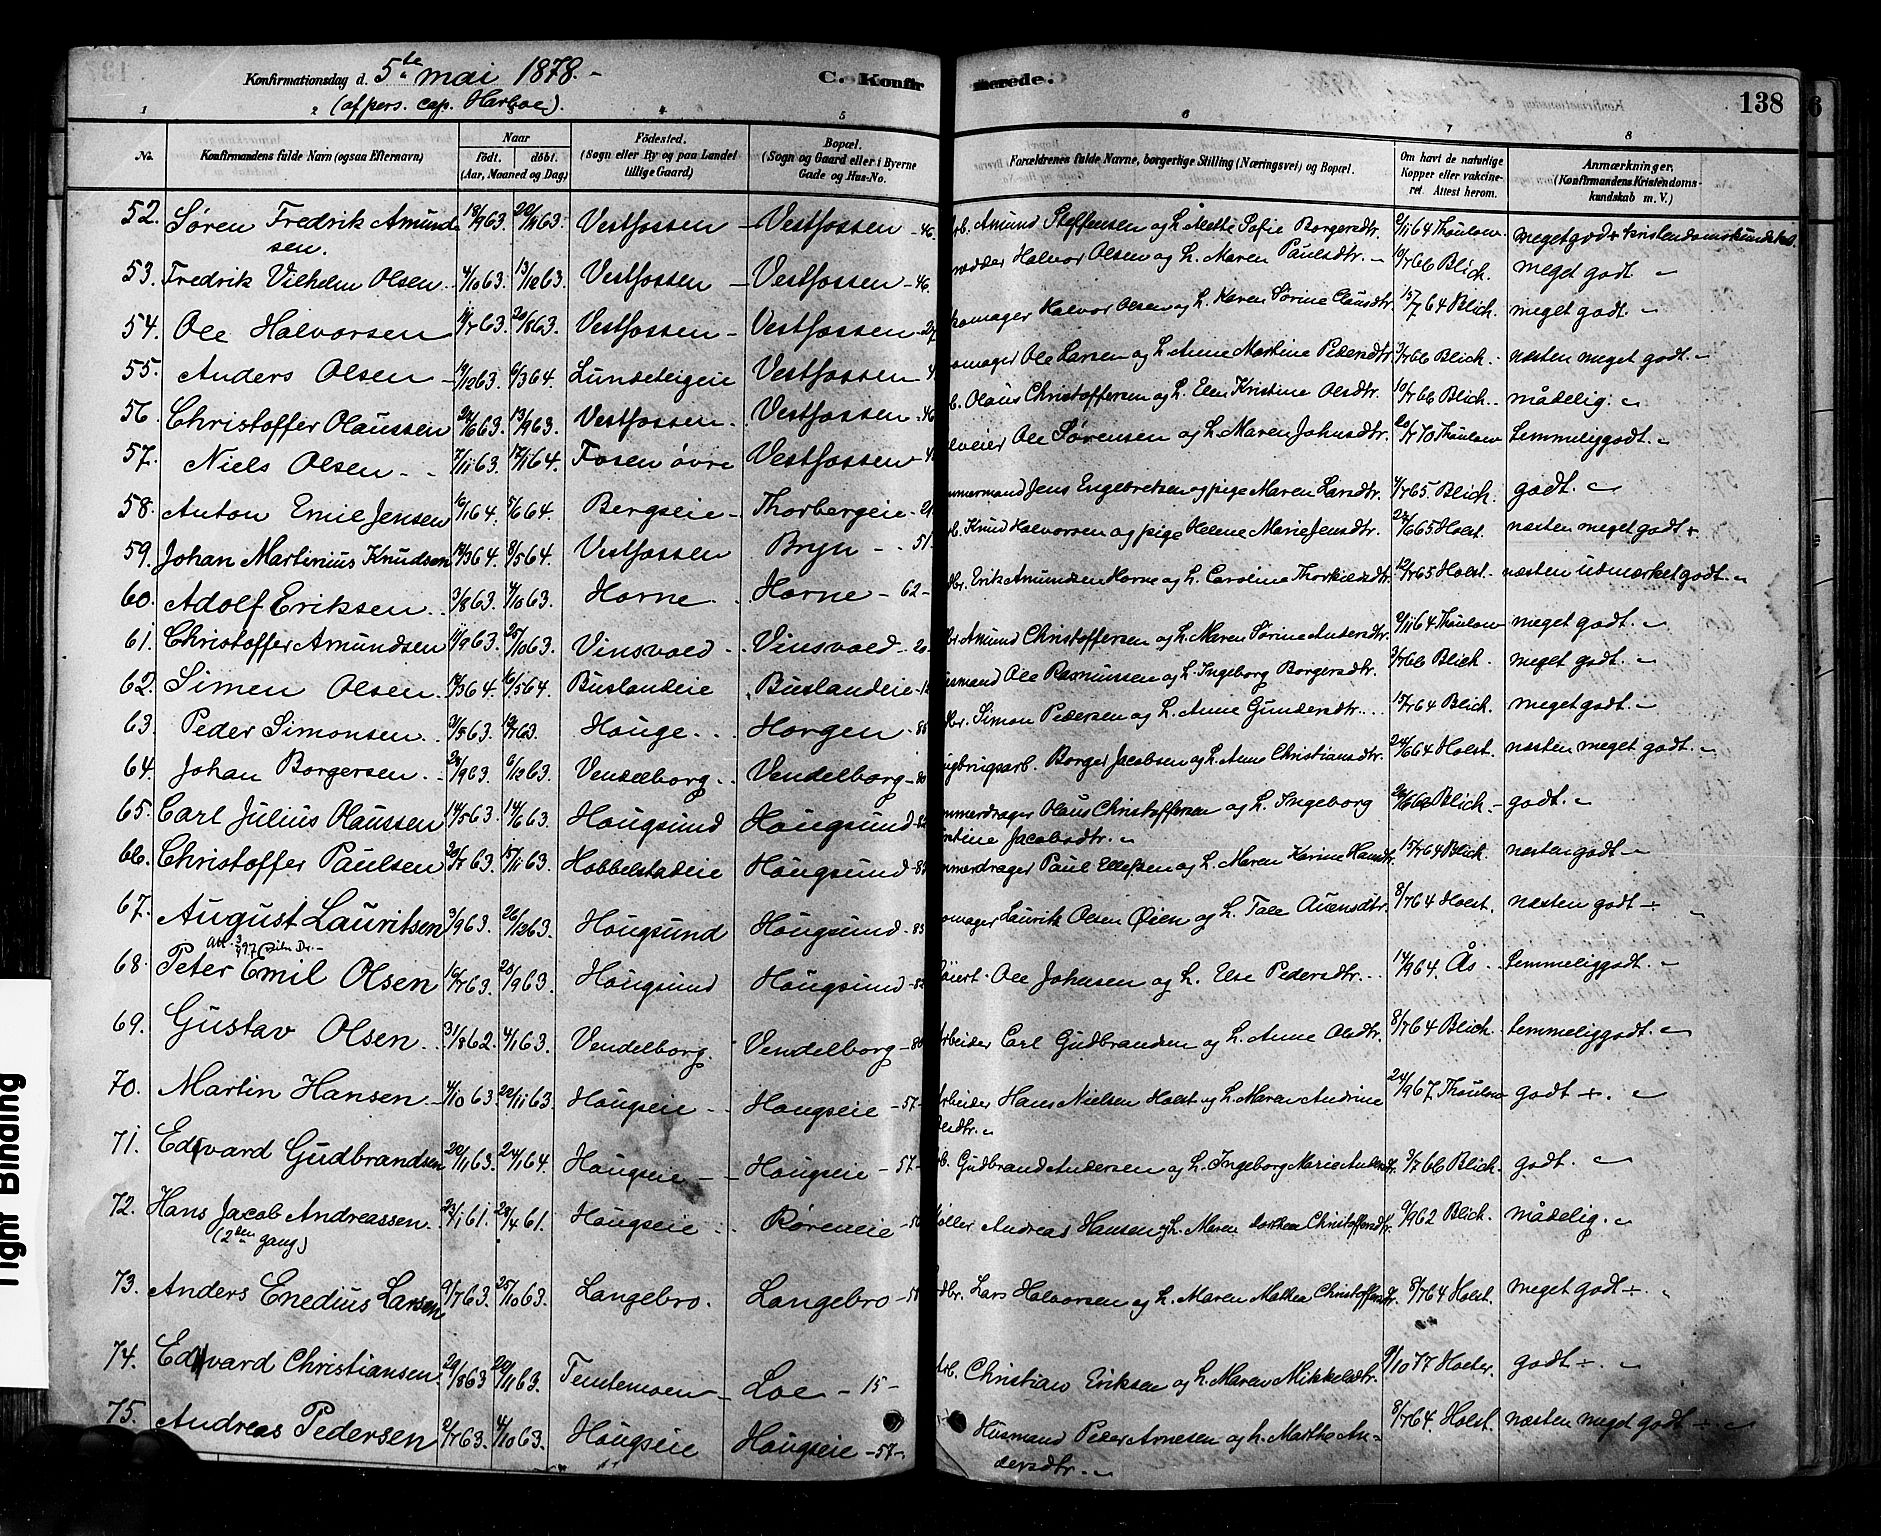 Konfirmationsdag d. 5te mai 1878.- C. Konfir merede. 138
(af pers. cap. Harboe).
1 2 4 5 6 7 8
No. Konfirmandens fulde Navn (ogsaa Efternavn) Naar födt. döbt. (Aar, Maaned og Dag) Födested. (Sogn eller By og paa Landet tillige Gaard) Bopæl. (Sogn og Gaard eller i Byerne Gade og Hus-No. Forældrenes fulde Navne, borgerlige Stilling (Næringsvei) og Bopæl. Om havt de naturlige Kopper eller vakcineret. Attest herom. Anmærkninger, (Konfirmandens Kristendomskundskab m. V.)
52. Søren Fredrik Amundsen. 18/9 63. 20/11 63. Vestfossen - Vestfossen - 46. Amund Steffensen og h. Mette Sofie Borgersdtr. 9/11 64 Thaulow. meget god + kristendomskundskab.
53. Fredrik Vilhelm Olsen. 4/10 63. 13/12 63. Vestfossen - Vestfossen - 46. Halvor Olsen og h. Maren Paulsdtr. - 10/7 66 Blich. meget godt. "
54. Ole Halvorsen 11/7 63. 20/8 63. Vestfossen - Vestfossen - 27 omager Halvor Olsen og h. Karen Sørine Clausdtr. 15/7 64 Blich. meget godt. "
55. Anders Olsen - 19/12 63. 6/3 64. Lundeteigeie Vestfossen - omager Ole Larsen og h. Anne Martine Pedersdtr. 3/7 66 Blich. næsten meget godt. "
56. Christoffer Olaussen 24/6 63. 13/9 63. Vestfossen. Vestfossen - 46 b. Olaus Christoffersen og h. Elen Kristine Olsdtr. 10/7 66 Blich. mådelig. "
57. Niels Olsen - - 7/11 63. 17/1 64. Fosen øvre Vestfossen - Ole Sørensen og h. Maren Johnsdtr. 20/7 70 Thaulow temmeliggodt. "
58. Anton Emil Jensen 16/1 64. 5/6 64. Bergseie - Thorbergeie - mmermand Jens Engebretsen og pige Maren Larsdtr. 4/7 65. Blich. godt. "
59. Johan Martinius Knudsen 19/3 64 8/5 64. Vestfossen Bryn - . 51. b. Knud Halvorsen og pige Helene Marie Jensdtr. 24/6 65 Holst. næsten meget godt +
60. Adolf Eriksen . . 3/8 63. 4/10 63. Horne. . Horne - 62 - br. Erik Amundsen Horne og h. Caroline Thorkildsdtr. 12/7 65 Holst. næsten udmærket godt. "
61. Christoffer Amundsen 11/9 63. 25/10 63. Vinsvold . Vinsvold - br. Amund Christoffersen og h. Maren Sørine Andersdtr. 9/11 64 Thaulow meget godt. "
62. Simen Olsen. 19/3 64. 16/5 64. Buslandeie . Buslandeie - usmand Ole Rasmussen og h. Ingeborg Borgersdtr. 3/7 66 Blich. meget godt. "
63. Peder Simonsen . . 9/5 63. 19/7 63. Houge . . . Horgen - br. Simon Pedersen og h. Anne Gundersdtr. . . 15/7 64 Blich. meget godt. "
64. Johan Borgersen . . 28/9 63. 6/12 63. Vendelborg. . Vendelborg - 80 ugbrugsarb. Borger Jacobsen og h. Anne Christiansdtr. 24/6 64 Holst. næsten meget godt. "
65. Carl Julius Olaussen 14/5 63. 14/6 63. Hougsund Hougsund - mmerdrager Olaus Christoffersen og h. Ingeborg 26/6 66 Blich. - godt. "
ntine Jacobsdtr. "
66. Christoffer Paulsen 20/7 63. 15/11 63. Hobbelstadeie Hougsund - mmerdrager Paul Ellefsen og h. Maren Karine Hansdtr. 15/7 64 Blich. næsten godt "
67. August Lauritsen 3/9 63. 26/12 63. Hougsund Hougsund - 85 omager Laurits Olsen Øien og h. Tale Auensdtr. 8/7 64 Holst. næsten godt +
68. Peter Emil Olsen 16/7 63. 20/9 63. Hougsund Hougsund - Ole Johnsen og h. Else Pedersdtr. . . 14/9 64. Ås . temmeliggodt. "
69. Gustav Olsen . . 31/8 62. 4/1 63. Vendelborg. Vendelborg - 80 rbeider Carl Gudbrandsen og h. Anne Olsdtr. 8/7 64 Blich. temmeliggodt. "
70. Martin Hansen - 4/10 63. 22/11 63. Hougseie . . Hougseie - 57 - rbeider Hans Nielsen Holst og h. Maren Andrine 24/9 67 Thaulow godt +. "
dtr. "
71. Edvard Gudbrandsen 20/11 63. 24/1 64. Hougseie - - Hougseie - 57 - b. Gudbrand Andersen og h. Ingeborg Marie 3/7 66 Blich. godt. "
72. Hans Jacob Andreassen. 23/1 61. 28/4 61. Hougseie . . Røreneie Møller Andreas Hansen og h. Maren Dorthea Christoffersdtr. 9/9 62 Blich. mådelig. "
(2den gang)
73. Anders Enedius Larsen 9/7 63. 25/10 63. Langebro. Langebro - dbr. Lars Halvorsen og h. Maren Mathea Christoffersdtr. 8/7 64 Holst. meget godt +. "
74. Edvard Christiansen. 29/8 63 29/11 63. Temtemoen - Loe - 15 - rb. Christian Eriksen og h. Maren Mikkelsdtr. 9/10 77 godt +. "
75. Andreas Pedersen 2/7 63. 4/10 63. Hougseie Hougseie - 57 - Husmand Peder Arnesen og h. Marthe An- 8/7 64. Holst. næsten meget godt +. "
dersdtr. "
Tight Binding